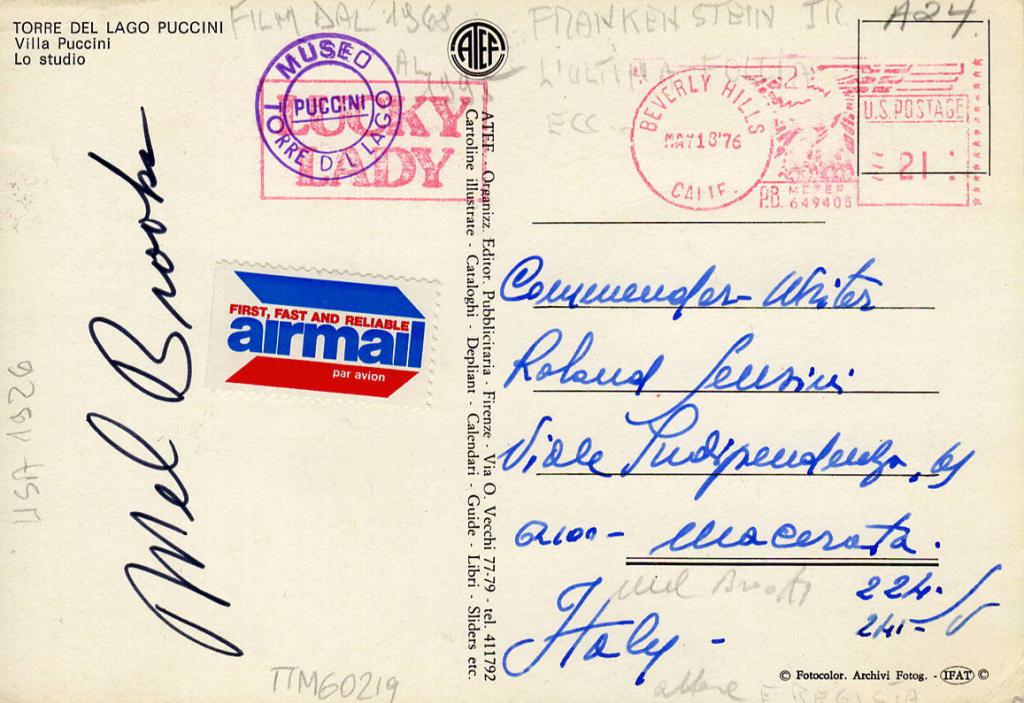 TORRE DEL LAGO PUCCINI
Villa Puccini
Lo studio
FILM DAL 1968
AL
FRANKENSTEIN JR
L'ULTIMA FOLLIA
ECC
A24
ATEF
MUSEO
PUCCINI
TORRE D L LAGO
LUCKY
LADY
BEVERLY HILLS
MAY 18 '76
CALIF.
U.S. POSTAGE
21
P.B. METER
649405
Mel Brooks
FIRST, FAST AND RELIABLE
airmail
par avion
ATEF - Organizz. Editor. Pubblicitaria - Firenze - Via O. Vecchi 77-79 - tel. 411792
Cartoline illustrate - Cataloghi - Depliant - Calendari - Guide - Libri - Sliders etc.
Commendar- Writer
Roland
Viale Indipendenza,
62100 - Macerata.
Italy -
Mel Brooks
224.
241-
USA 1926
TTM60219
attore E REGISTA
© Fotocolor. Archivi Fotog. - IFAT ©